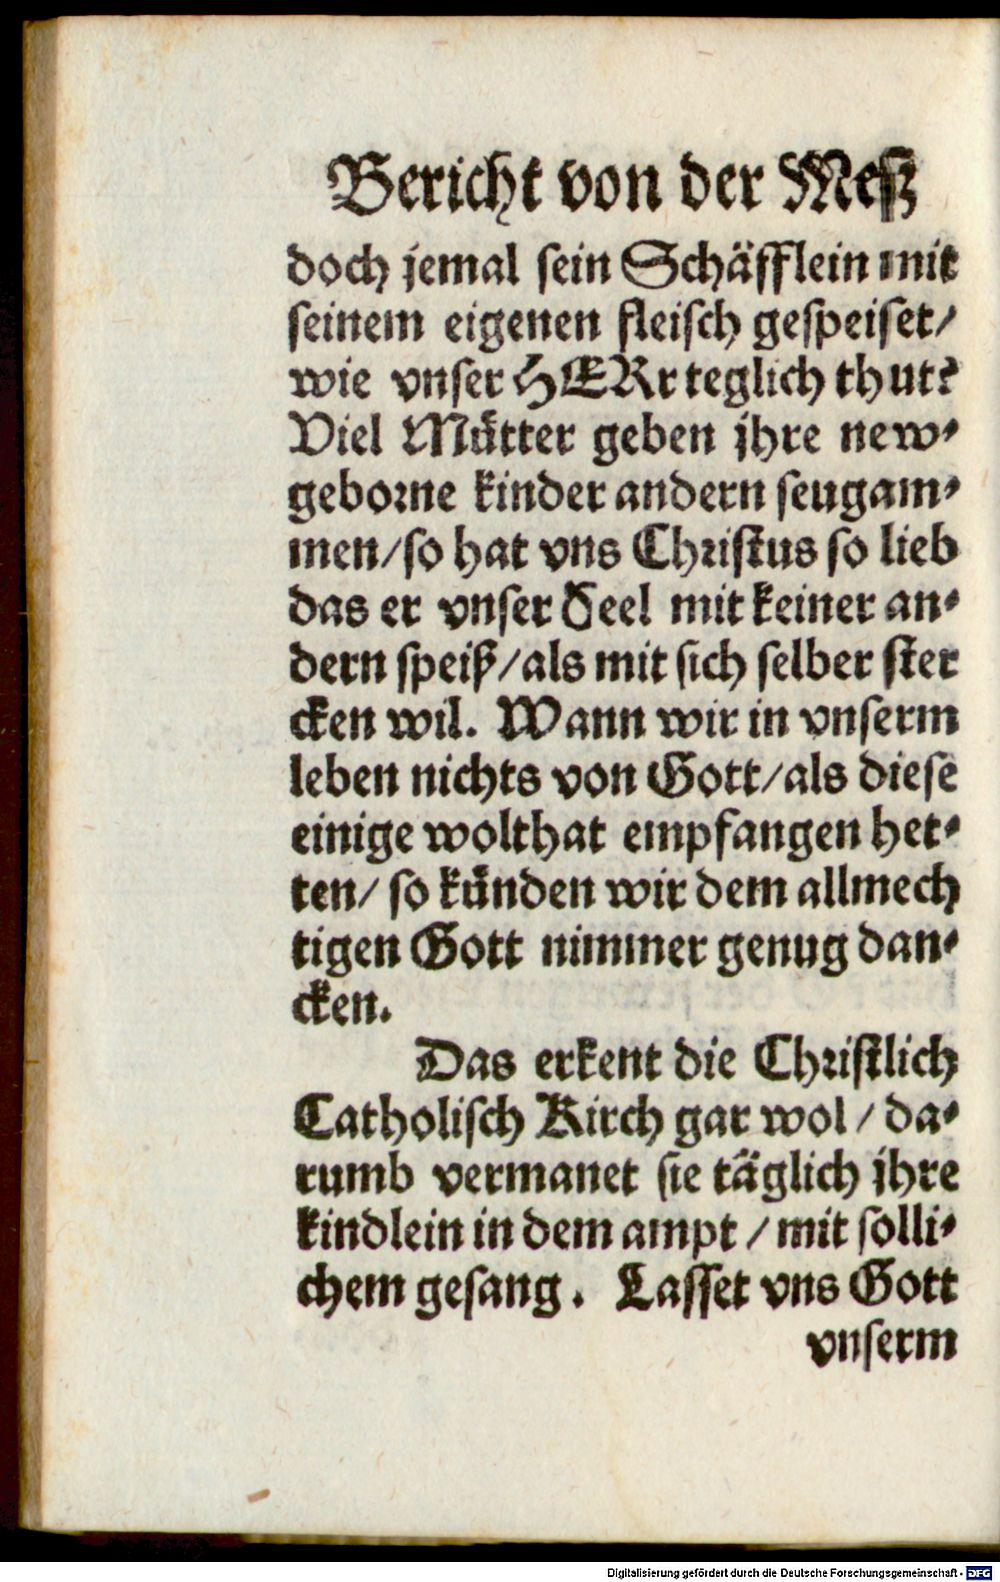 Bericht von der Meß
doch jemal sein Schäfflein mit
seinem eigenen fleisch gespeiset/
wie vnser HERr teglich thut?
Viel Mütter geben jhre new⸗
geborne kinder andern seugam⸗
men/so hat vns Christus so lieb
das er vnser Seel mit keiner an⸗
dern speiß/als mit sich selber ster
cken wil. Wann wir in vnserm
leben nichts von Gott/als diese
einige wolthat empfangen het⸗
ten/ so künden wir dem allmech
tigen Gott nimmer genug dan⸗
cken.
Das erkent die Christlich
Catholisch Kirch gar wol / da⸗
rumb vermanet sie täglich jhre
kindlein in dem ampt / mit solli⸗
chem gesang. Lasset vns Gott
vnserm
Digitalisierung gefördert durch die Deutsche Forschungsgemeinschaft - DFG